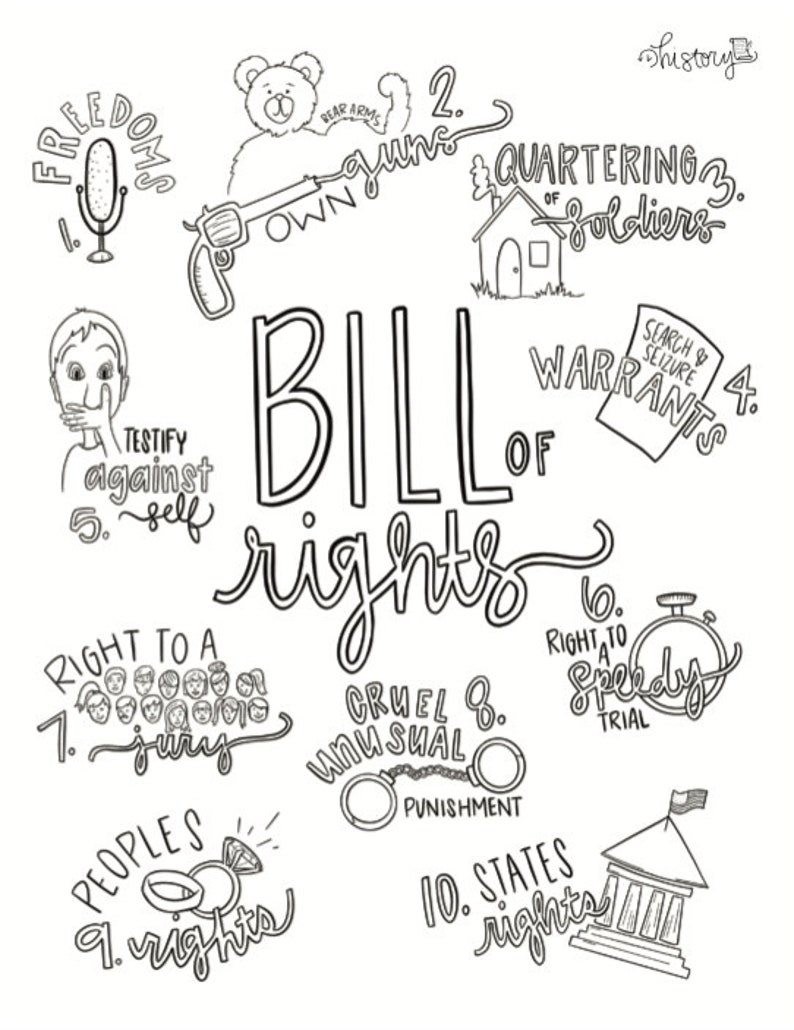 history
FREEDOMS
1.
BEAR ARMS
2.
OWN guns
QUARTERING
OF
soldiers
3.
SEARCH &
SEIZURE
WARRANTS
4.
TESTIFY
against
self
5.
BILL OF
rights
6.
RIGHT TO
A
speedy
TRIAL
RIGHT TO A
7. jury
CRUEL 8.
UNUSUAL
PUNISHMENT
PEOPLES
9. rights
10. STATES
rights